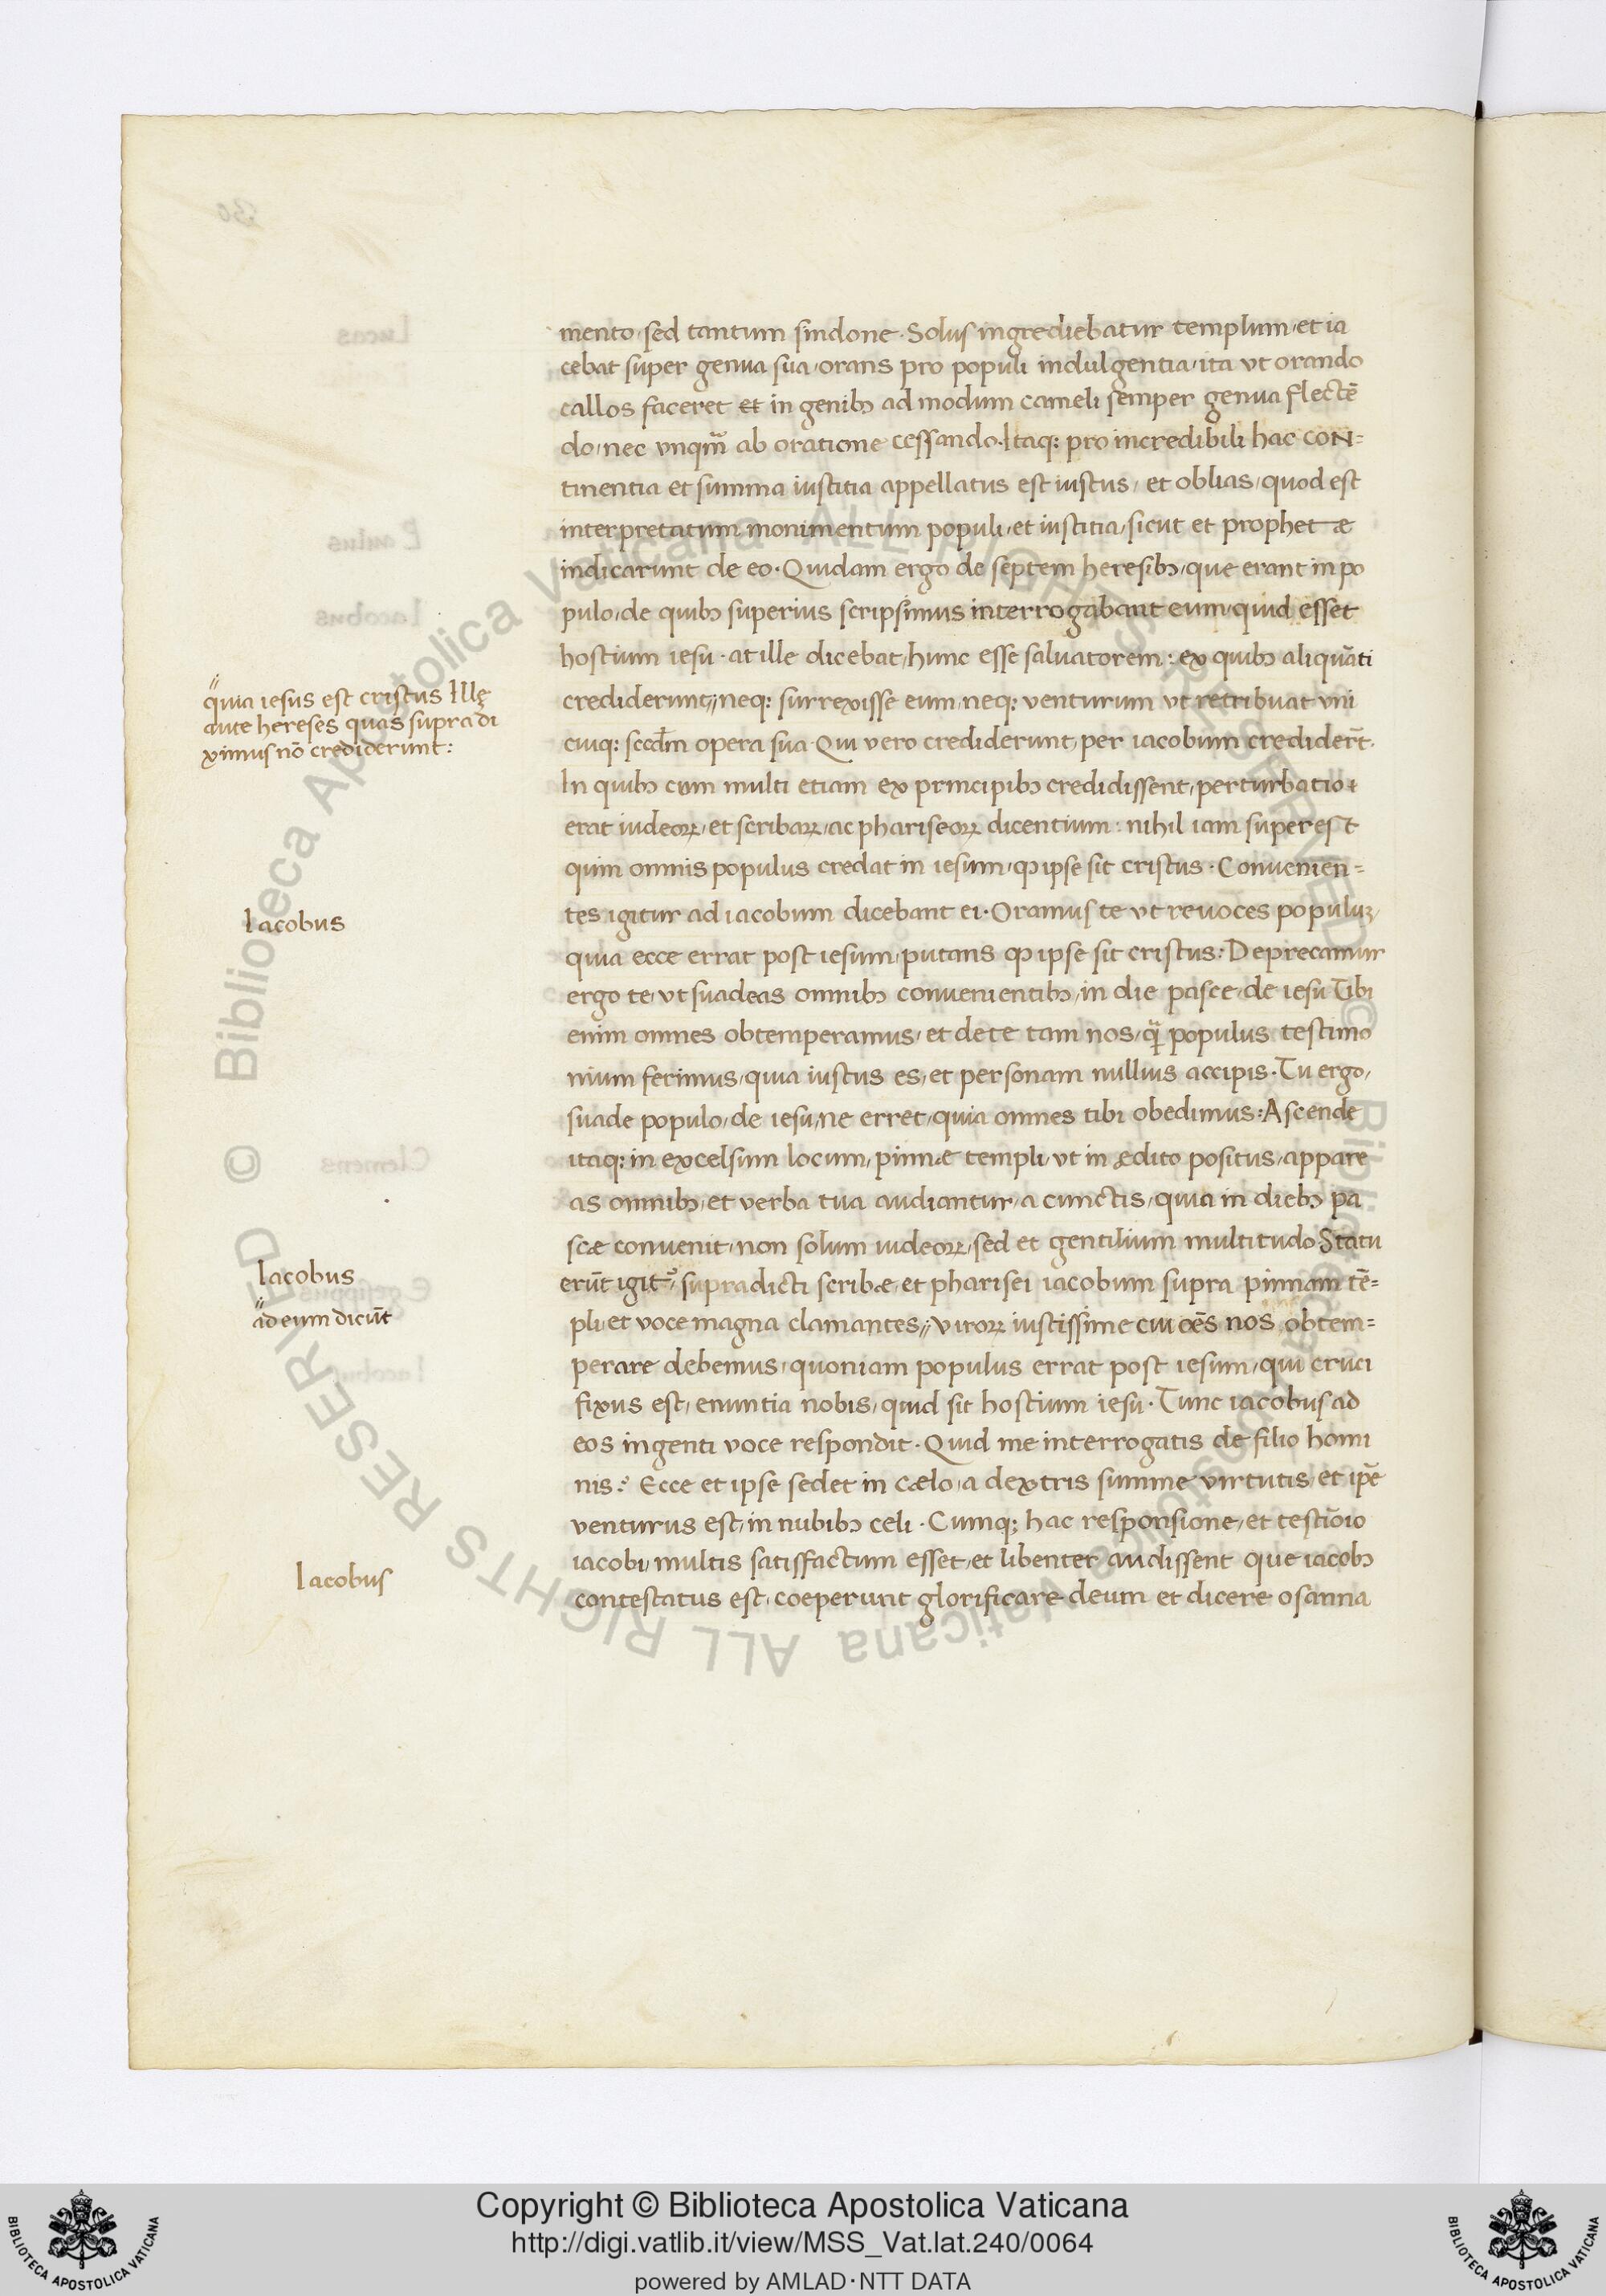 mento, sed tantum sindone. Solus ingrediebatur templum, et ia
cebat super genua sua, orans pro populi indulgentia, ita vt orando
callos faceret et in genibꝫ ad modum cameli semper genua flectẽ
do, nec vnqm̃ ab oratione cessando. Itaqꝫ pro incredibili hac con=
tinentia et summa iustitia appellatus est iustus, et oblias, quod est
interpretatum monimentum populi, et iustitia, sicut et prophetæ
indicarunt de eo. Quidam ergo de septem heresibꝫ, que erant in po
pulo, de quibꝫ superius scripsimus interrogabant eum, quid esset
hostium iesu. at ille dicebat, hunc esse saluatorem: ex quibꝫ aliquãti
crediderunt,, neqꝫ surrexisse eum, neqꝫ venturum vt retribuat vni
cuiqꝫ scd̃m opera sua. Qui vero crediderunt, per iacobum credider̃t.
In quibꝫ cum multi etiam ex principibꝫ credidissent, perturbatio
erat iudeoꝝ, et scribaꝝ, ac phariseoꝝ dicentium: nihil iam superest
quin omnis populus credat in iesum, ꝙ ipse sit cristus. Conuenien=
tes igitur ad iacobum dicebant ei. Oramus te vt reuoces populuꝫ,
quia ecce errat post iesum, putans ꝙ ipse sit cristus: Deprecamur
ergo te, vt suadeas omnibꝫ conuenientibꝫ, in die pasce, de iesu Tibi
enim omnes obtemperamus, et de te tam nos, q̃ populus testimo
nium ferimus, quia iustus es, et personam nullius accipis. Tu ergo,
suade populo, de iesu, ne erret, quia omnes tibi obedimus: Ascende
itaqꝫ in excelsum locum, pinnæ templi, vt in ædito positus, appare
as omnibꝫ, et verba tua audiantur, a cunctis, quia in diebꝫ pa
scæ conuenit, non solum iudeoꝝ, sed et gentilium multitudo. Statu
erũt igit᷑, supradicti scribæ, et pharisei iacobum supra pinnam tẽ=
pli, et voce magna clamantes,, viroꝝ iustissime cui oẽs nos obtem=
perare debemus, quoniam populus errat post iesum, qui cruci
fixus est, enuntia nobis, quid sit hostium iesu. Tunc iacobus ad
eos ingenti voce respondit. Quid me interrogatis de filio homi
nis? Ecce et ipse sedet in cælo, a dextris summe virtutis, et ip̃e
venturus est, in nubibꝫ celi. Cumqꝫ hac responsione, et testiõio
iacobi, multis satisfactum esset, et libenter audissent que iacobꝫ
contestatus est, coeperunt glorificare deum et dicere osanna
quia iesus est cristus Illę
aute hereses quas supra di
ximus nõ crediderunt:
Iacobus
Iacobus
ad eum dicũt
Iacobus
Copyright © Biblioteca Apostolica Vaticana
http://digi.vatlib.it/view/MSS_Vat.lat.240/0064
powered by AMLAD·NTT DATA
BIBLIOTECA APOSTOLICA VATICANA
BIBLIOTECA APOSTOLICA VATICANA
© Biblioteca Apostolica Vaticana ALL RIGHTS RESERVED
© Biblioteca Apostolica Vaticana ALL RIGHTS RESERVED